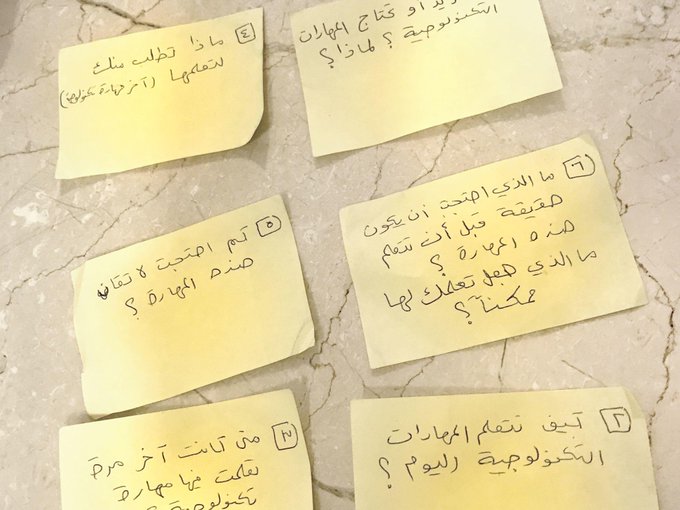 او تحتاج المهارات
التكنولوجية ؟ لماذا؟
٤ ماذا تطلب منك
لتعلمها (آخر مهارة تكنولوجية)
٦ ما الذي احتجت أن يكون
حقيقة قبل أن تتعلم
هذه المهارة ؟
ما الذي جعل تعلمك لها
ممكناً؟
٥ كم احتجت لاتقان
هذه المهارة ؟
٢ كيف تتعلم المهارات
التكنولوجية اليوم ؟
٣ متى كانت آخر مرة
تعلمت فيها مهارة
تكنولوجية ؟